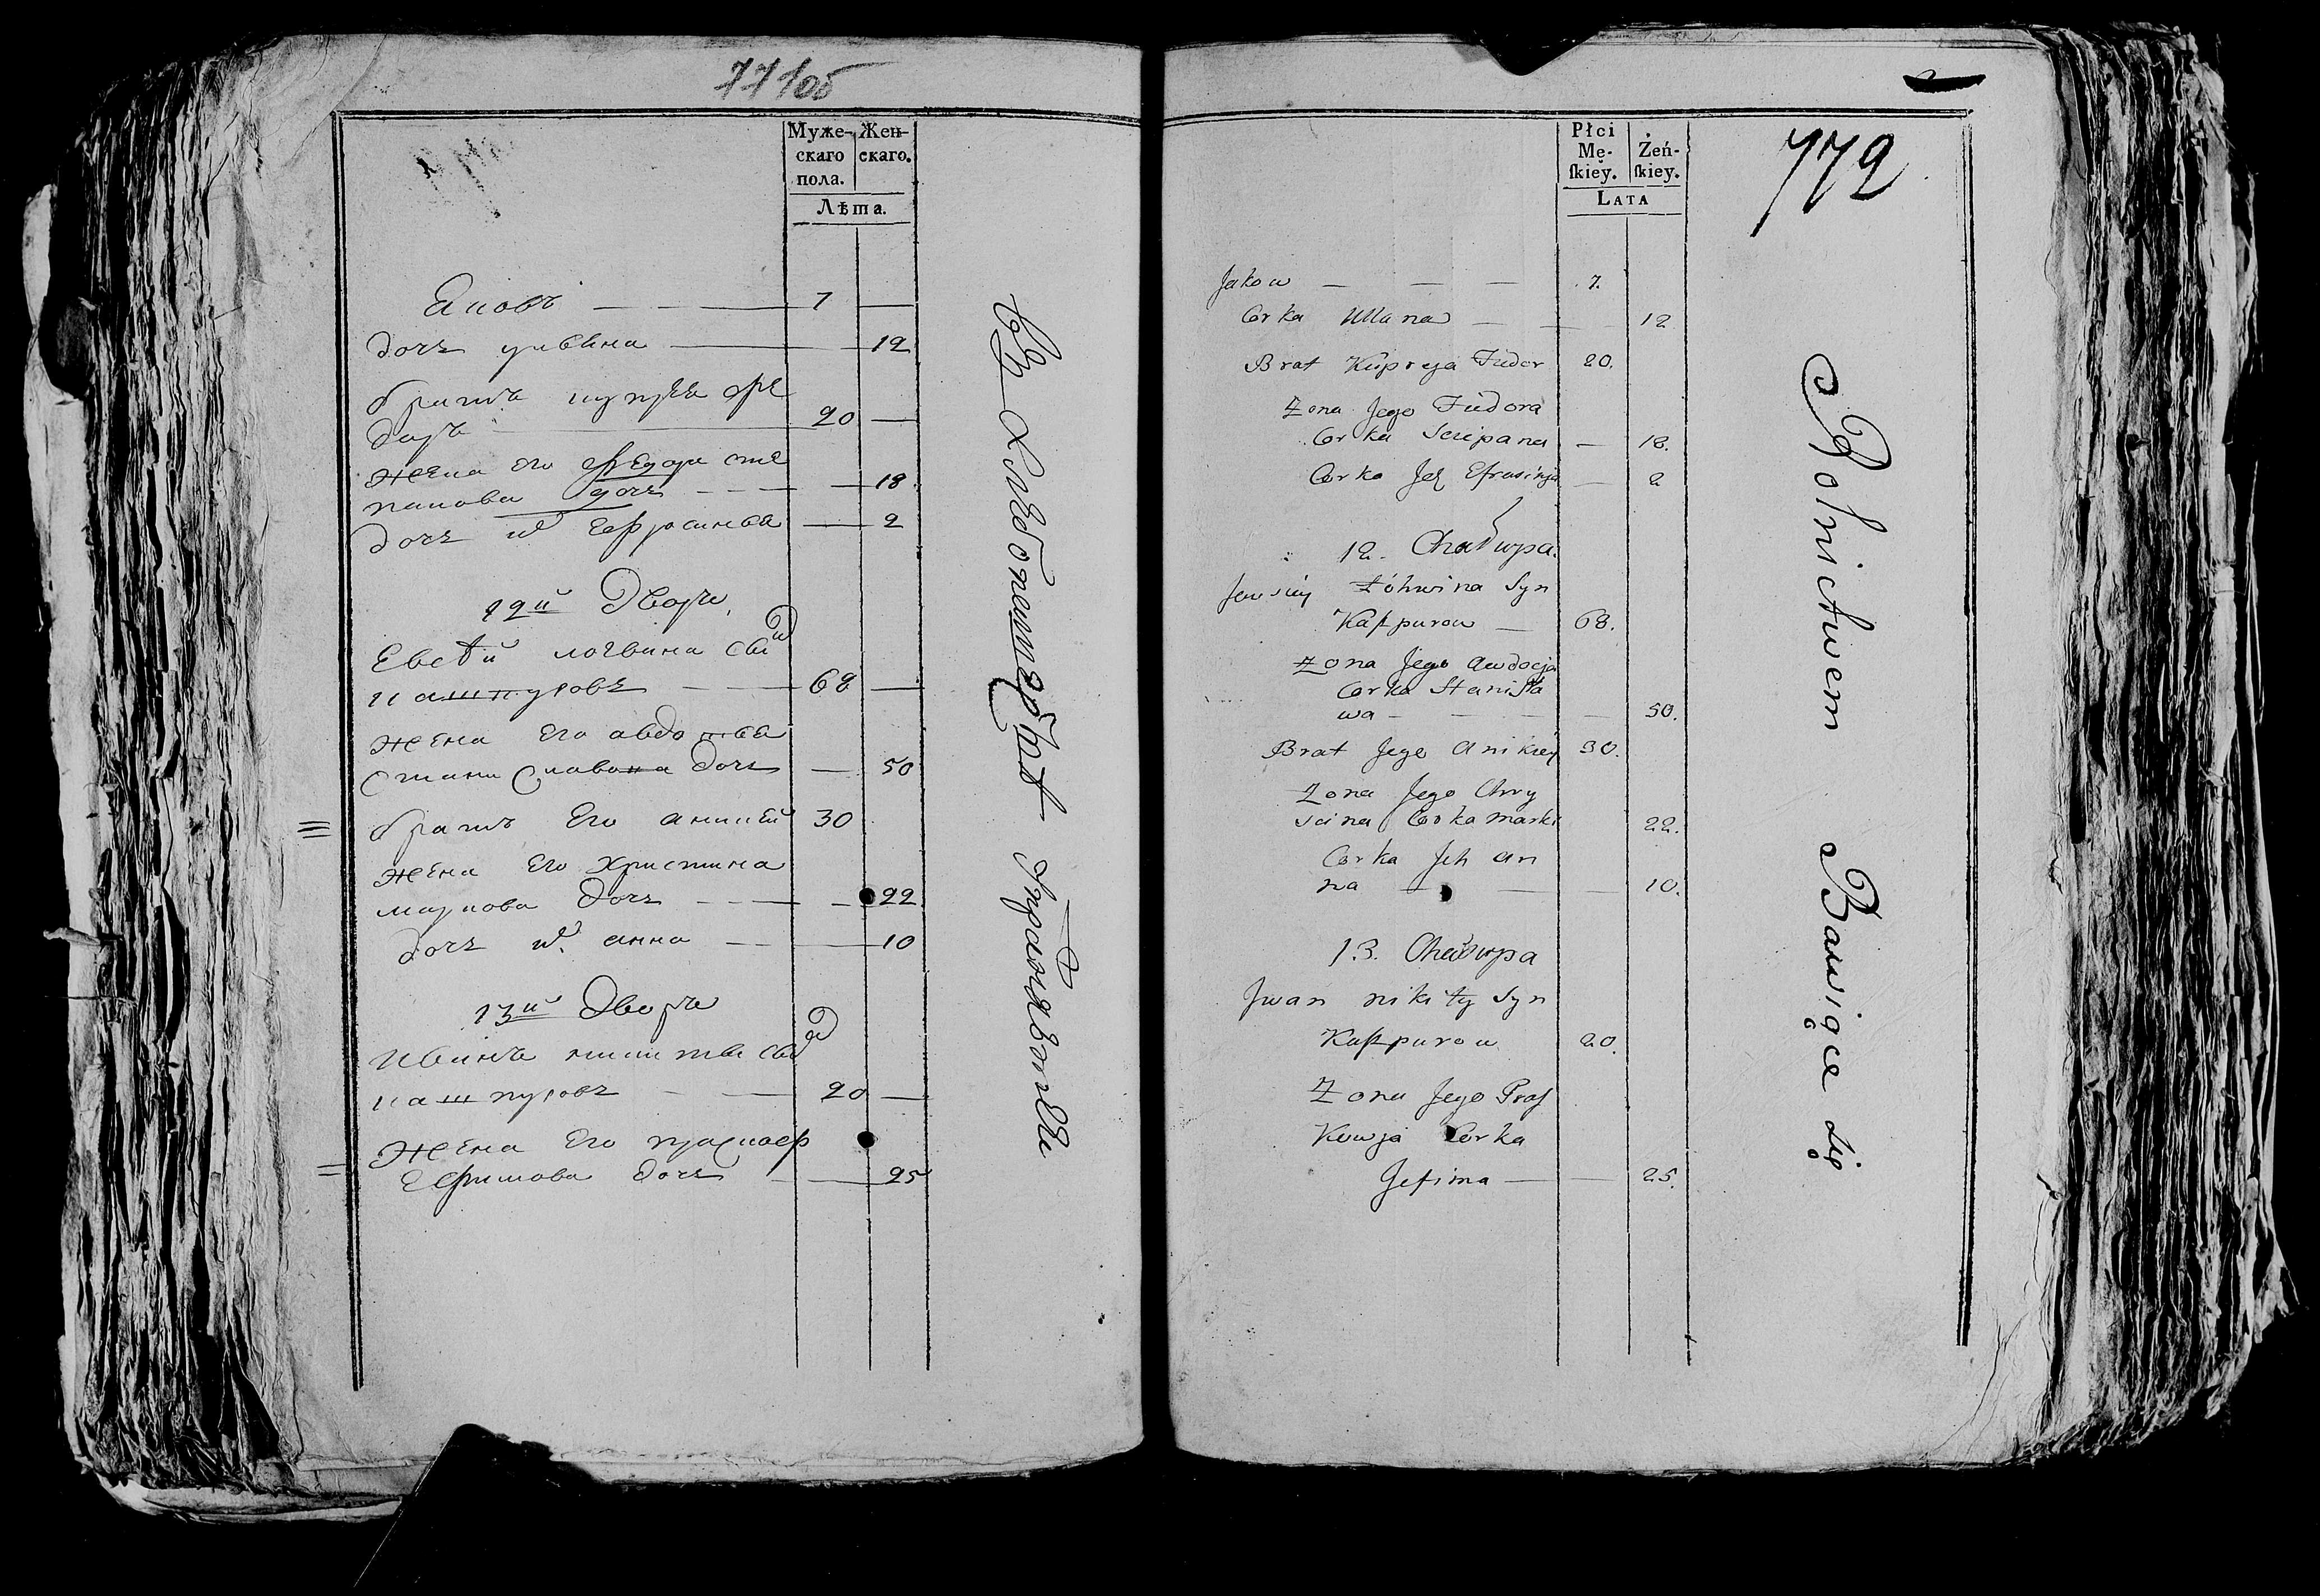 771об
Муже-
скаго
пола.
Жен-
скаго.
Лѣта.
Яковъ 7
дочь ульяна 12
братъ купрея фе
даръ 20
жена его федора сте
панова дочь 18
дочь их Ефросинья 2
12й Дворъ
Евсѣй логвина сынъ
кашпуровъ 68
жена Его авдотья
Станиславова дочь 50
братъ Его аникѣй 30
жена Его христина
маркова дочь 22
дочь их анна 10
13й Дворъ
Иванъ никиты сынъ
кашпуровъ 20
жена Его
Ефимова дочь 25
въ хлебопашествѣ упражняющіеся
772
Płci
Mę-
ſkiey.
Żeń-
ſkiey.
LATA
Jakow 7.
Corka Ullana 12
Brat Kupreja Fiedor 20.
Żona Jego Fiudora
Corka Sciepana 18.
Corka Jch Efrasinja 2
12. Chałupa.
Jewsiey Łohwina Syn
Kaszpurow 68.
Żona Jego Awdocja
Corka Stanisła
wa 50.
Brat Jego Anikiey 30.
Żona Jego Chry
scina Corka Marki 22.
Corka Jch An
na 10.
13. Chałupa
Jwan Nikity Syn
Kaszpurow 20.
Żona Jego Praſ
Kowja Corka
Jefima 25.
Rolnictwem Bawiące się